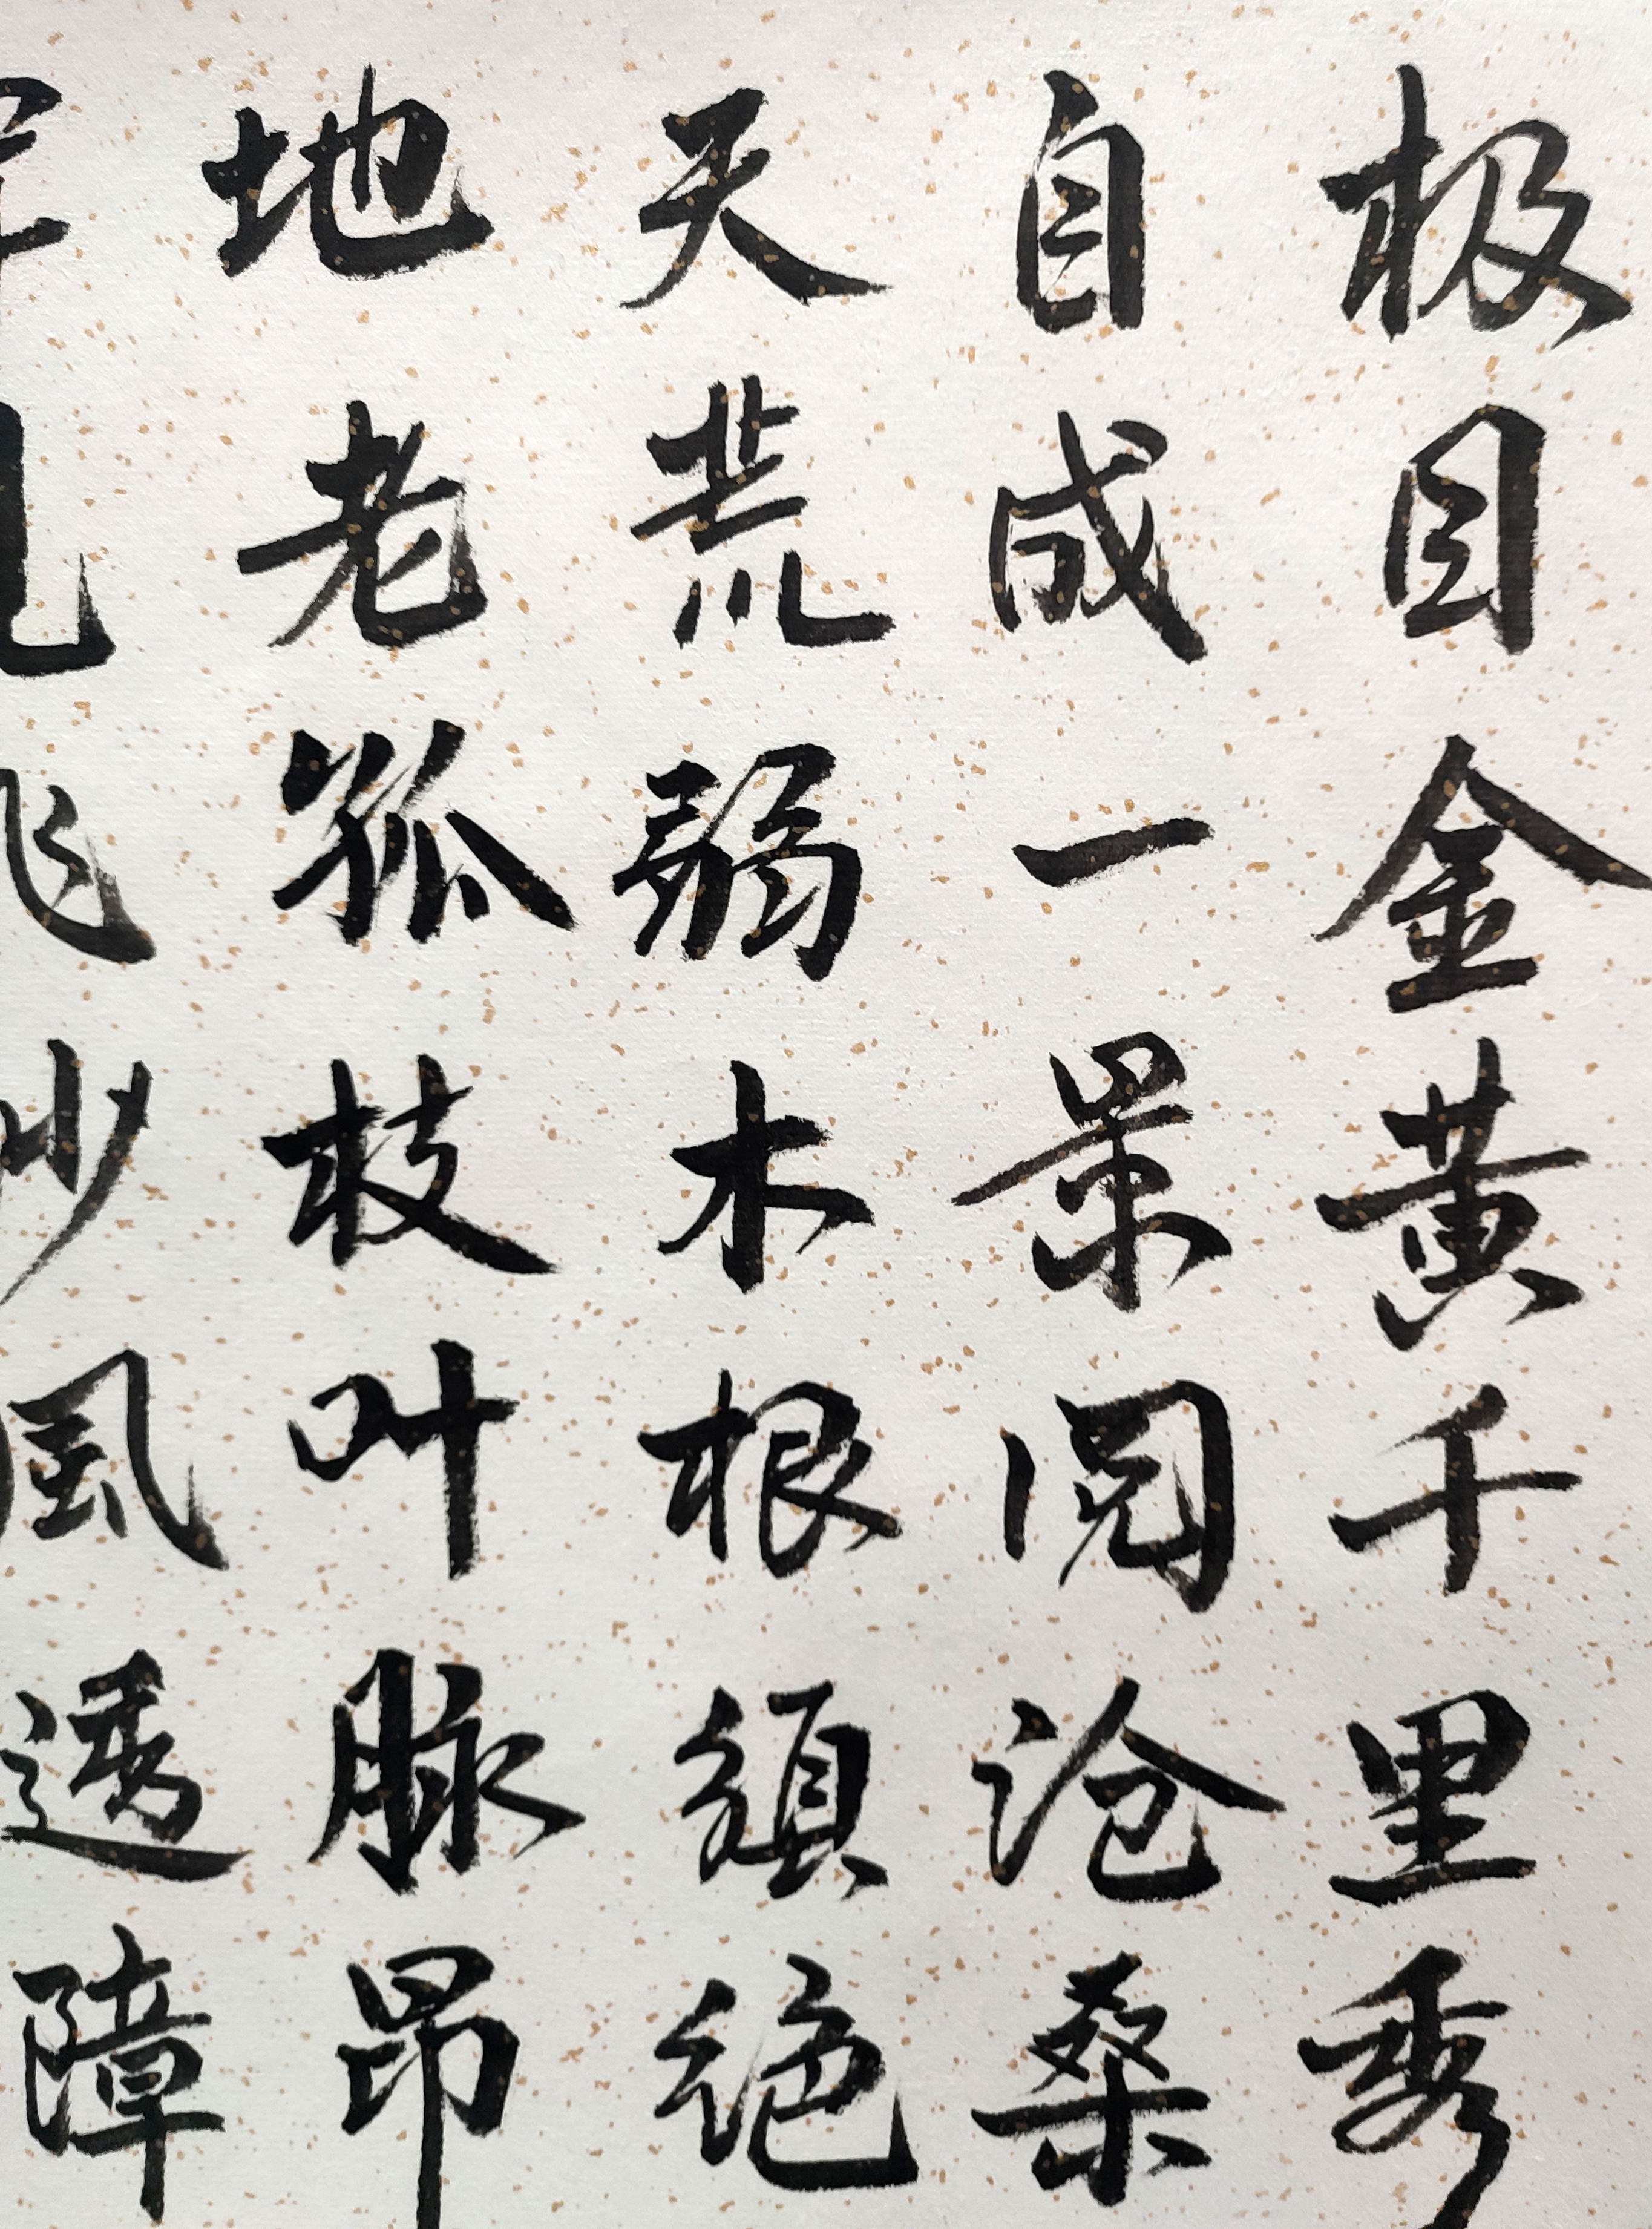 极目金黄千里秀
自成一景阅沧桑
天荒弱木根须绝
地老孤枝叶脉昂
飞沙風透障